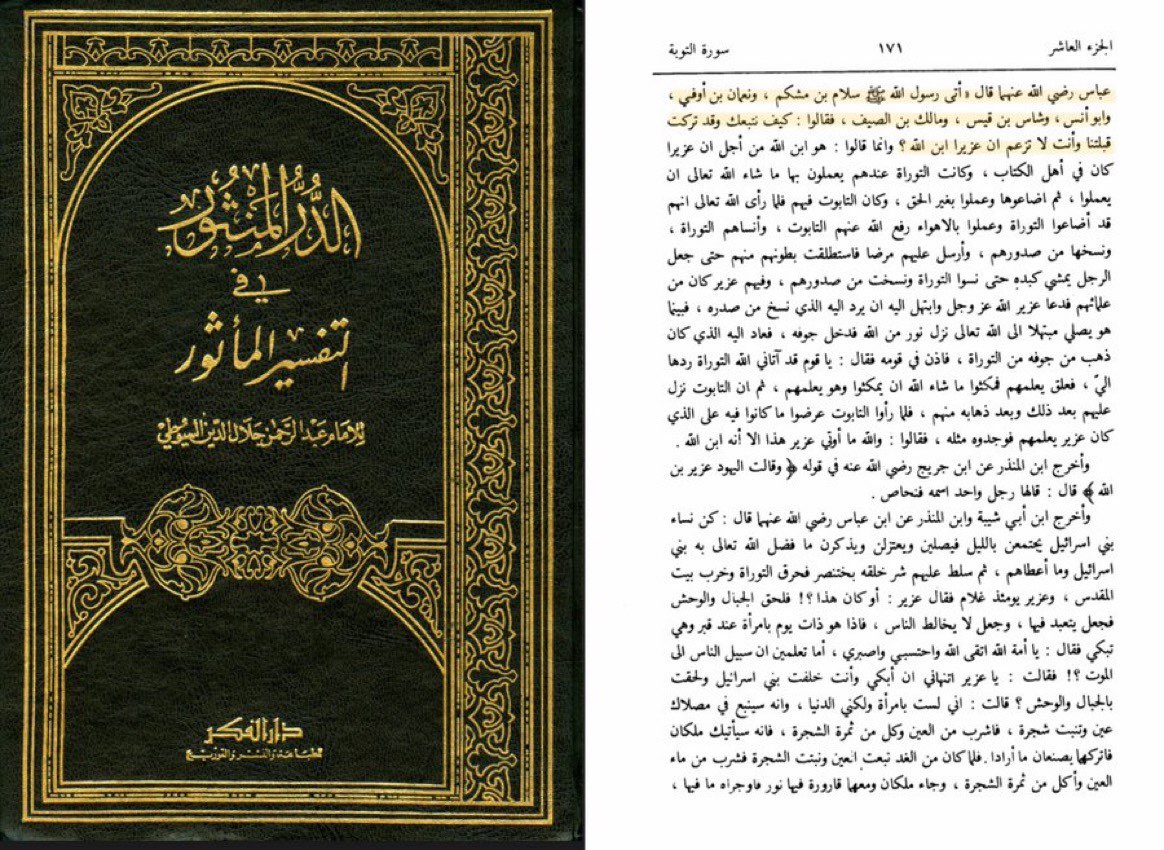 الدُّرُّ المَنثُور
في
التفسير المأثور
للإمام عبد الرحمن جلال الدين السيوطي
دار الفكر
للطباعة والنشر والتوزيع
الجزء العاشر ١٧١ سورة التوبة
عباس رضي الله عنهما قال « أتى رسول الله ﷺ سلام بن مشكم ، ونعمان بن أوفي ،
وابو أنس ، وشاس بن قيس ، ومالك بن الصيف ، فقالوا : كيف نتبعك وقد تركت
قبلتنا وأنت لا تزعم ان عزيرا ابن الله ؟ وانما قالوا : هو ابن الله من أجل ان عزيرا
كان في أهل الكتاب ، وكانت التوراة عندهم يعملون بها ما شاء الله تعالى ان
يعملوا ، ثم اضاعوها وعملوا بغير الحق ، وكان التابوت فيهم فلما رأى الله تعالى انهم
قد أضاعوا التوراة وعملوا بالاهواء رفع الله عنهم التابوت ، وأنساهم التوراة ،
ونسخها من صدورهم ، وأرسل عليهم مرضا فاستطلقت بطونهم منهم حتى جعل
الرجل يمشي كبده حتى نسوا التوراة ونسخت من صدورهم ، وفيهم عزير كان من
علمائهم فدعا عزير الله عز وجل وابتهل اليه ان يرد اليه الذي نسخ من صدره ، فبينما
هو يصلي مبتهلا الى الله تعالى نزل نور من الله فدخل جوفه ، فعاد اليه الذي كان
ذهب من جوفه من التوراة ، فاذن في قومه فقال : يا قوم قد آتاني الله التوراة ردها
اليّ ، فعلق يعلمهم فمكثوا ما شاء الله ان يمكثوا وهو يعلمهم ، ثم ان التابوت نزل
عليهم بعد ذلك وبعد ذهابه منهم ، فلما رأوا التابوت عرضوا ما كانوا فيه على الذي
كان عزير يعلمهم فوجدوه مثله ، فقالوا : والله ما أوتي عزير هذا الا أنه ابن الله .
وأخرج ابن المنذر عن ابن جريج رضي الله عنه في قوله ﴿ وقالت اليهود عزير بن
الله ﴾ قال : قالها رجل واحد اسمه فنحاص .
وأخرج ابن أبي شيبة وابن المنذر عن ابن عباس رضي الله عنهما قال : كن نساء
بني اسرائيل يجتمعن بالليل فيصلين ويعتزلن ويذكرن ما فضل الله تعالى به بني
اسرائيل وما أعطاهم ، ثم سلط عليهم شر خلقه بختنصر فحرق التوراة وخرب بيت
المقدس ، وعزير يومئذ غلام فقال عزير : أو كان هذا ؟! فلحق الجبال والوحش
فجعل يتعبد فيها ، وجعل لا يخالط الناس ، فاذا هو ذات يوم بامرأة عند قبر وهي
تبكي فقال : يا أمة الله اتقى الله واحتسبي واصبري ، أما تعلمين ان سبيل الناس الى
الموت ؟! فقالت : يا عزير اتنهاني ان أبكي وأنت خلفت بني اسرائيل ولحقت
بالجبال والوحش ؟ قالت : اني لست بامرأة ولكني الدنيا ، وانه سينبع في مصلاك
عين وتنبت شجرة ، فاشرب من العين وكل من ثمرة الشجرة ، فانه سيأتيك ملكان
فاتركهما يصنعان ما أرادا . فلما كان من الغد تبعت العين ونبتت الشجرة فشرب من ماء
العين وأكل من ثمرة الشجرة ، وجاء ملكان ومعهما قارورة فيها نور فاوجراه ما فيها ،